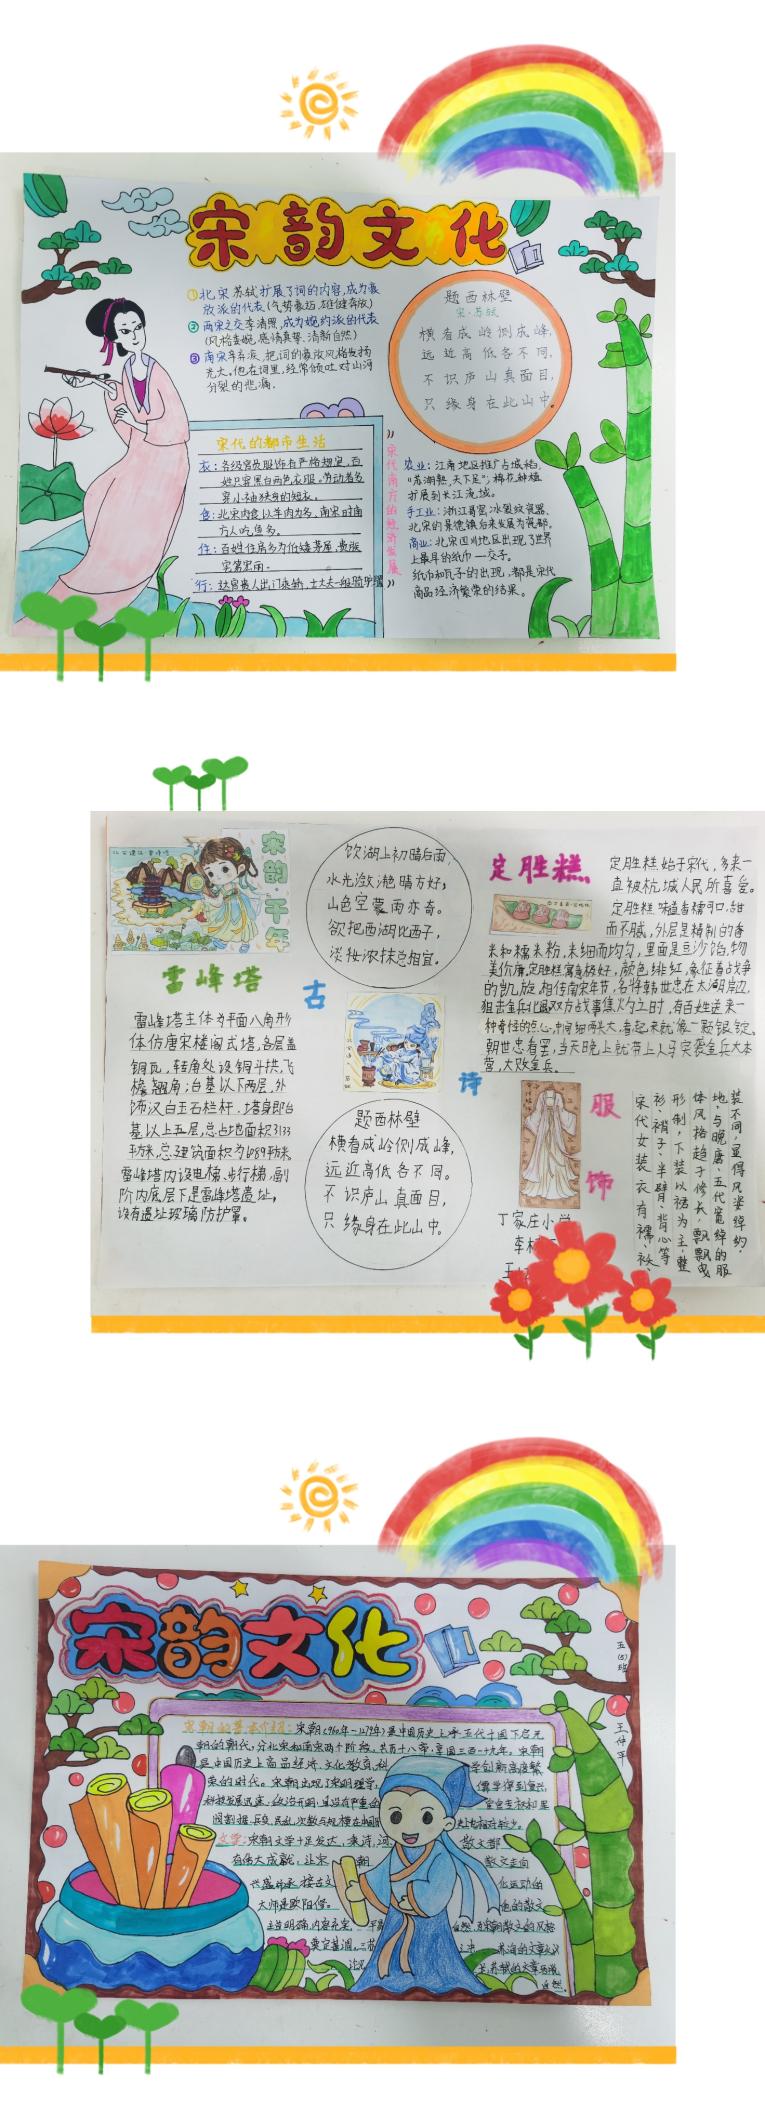 宋韵文化
①北宋苏轼扩展了词的内容,成为豪
放派的代表(气势豪迈,雄健奔放)
②两宋之交李清照,成为婉约派的代表
(风格委婉,感情真挚,清新自然)
③南宋辛弃疾,把词的豪放风格发扬
光大。他在词里,经常倾吐对山河
分裂的悲痛。
题西林壁
宋·苏轼
横看成岭侧成峰,
远近高低各不同,
不识庐山真面目,
只缘身在此山中。
宋代的都市生活
衣:各级官员服饰有严格规定,百
姓只穿黑白两色衣服。劳动者多
穿小袖狭身的短衣。
食:北宋肉食以羊肉为多,南宋时南
方人吃鱼多。
住:百姓住房多为低矮茅屋,贵族
宅第宏丽。
行:达官贵人出门乘轿,士大夫一般骑
宋代南方的经济发展
农业:江南地区推广占城稻,
"苏湖熟,天下足";棉花种植
扩展到长江流域。
手工业:浙江哥窑冰裂纹瓷器、
北宋的景德镇后来发展为瓷都。
商业:北宋四川地区出现了世界
上最早的纸币—交子。
纸币和瓦子的出现,都是宋代
商品经济繁荣的结果。
宋韵·千年
雷峰塔
雷峰塔主体为平面八角形
体仿唐宋楼阁式塔,各层盖
铜瓦,转角处设铜斗拱,飞
檐翘角;台基以下两层,外
饰汉白玉石栏杆,塔身即台
基以上五层,总占地面积3133
平方米,总建筑面积为6089平方米
雷峰塔内设电梯、步行梯,副
阶内底层下是雷峰塔遗址,
设有遗址玻璃防护罩。
古
诗
饮湖上初晴后雨,
水光潋滟晴方好,
山色空蒙雨亦奇。
欲把西湖比西子,
淡妆浓抹总相宜。
题西林壁
横看成岭侧成峰,
远近高低各不同。
不识庐山真面目,
只缘身在此山中。
定胜糕
定胜糕始于宋代,多来一
直被杭城人民所喜爱。
定胜糕味道香糯可口,甜
而不腻,外层是精制的香
米和糯米粉,米细而均匀,里面是豆沙馅,物
美价廉,定胜糕寓意极好,颜色绯红,象征着战争
的凯旋,相传南宋年节,名将韩世忠在太湖岸边
狙击金兵北退,双方战事焦灼之时,有百姓送来一
种奇怪的点心,中间细两头大,看起来就像一颗银锭。
朝世忠看罢,当天晚上就带上人马突袭金兵大本
营,大败金兵。
服饰
宋代女装衣有襦、袄、
衫、褙子、半臂、背心等
形制,下装以裙为主,整
体风格趋于修长,飘飘曳
地,与晚唐、五代宽绰的服
装不同,显得风姿绰约。
丁家庄小学
宋韵文化
五(5)班
王仲平
宋朝的基本介绍:宋朝(960年-1279年)是中国历史上承五代十国下启元
朝的朝代,分北宋和南宋两个阶段,共历十八帝,享国三百一十九年。宋朝
是中国历史上商品经济、文化教育、科
学创新高度繁
荣的时代。宋朝出现了宋明理学,
儒学得到复兴,
科技发展迅速,政治开明,且没有严重的
宦官专权和军
阀割据,兵变、民乱次数与规模在中国
史上也相对较少。
文学:宋朝文学十足发达,秉诗,词
散文都
有伟大成就,让宋
朝
散文走向
兴盛
接古文
化运动的
大师是欧阳修。
他的散文
主旨明确,内容充实,
奠定基调。三苏
苏洵的文章